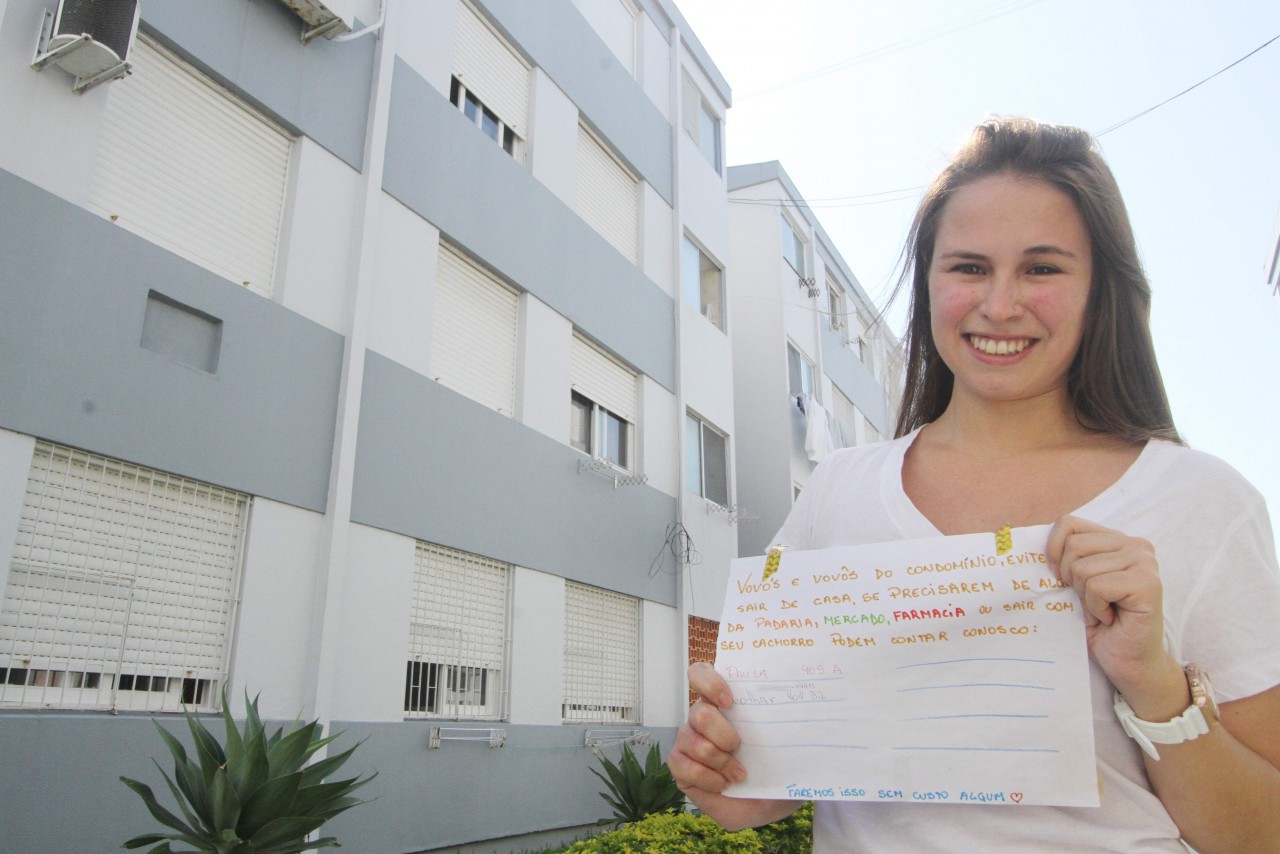 VOVÓS E VOVÔS DO CONDOMÍNIO, EVITE
SAIR DE CASA, SE PRECISAREM DE
DA PADARIA, MERCADO, FARMACIA OU SAIR COM
SEU CACHORRO PODEM CONTAR CONOSCO:
905 A
FAREMOS ISSO SEM CUSTO ALGUM ♡